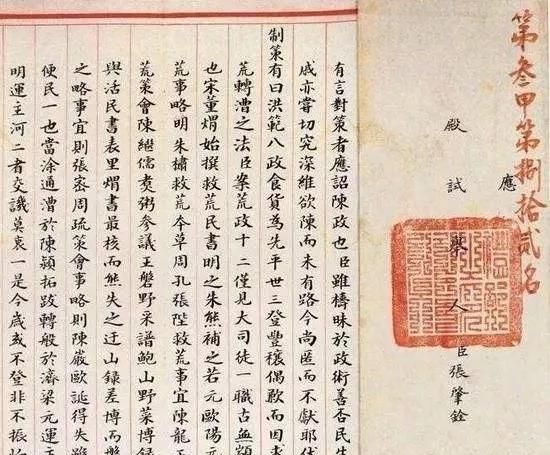 第叁甲第捌拾貳名
應
殿試舉人臣張肇銓
有言對策者應詔陳政也臣雖檮昧於政術善否民生
戚亦嘗切究深維欲陳而未有路今尚匿而不獻耶伏
制策有曰洪範八政食貨為先平世三登豐穰偶歉而因
荒轉漕之法臣案荒政十二僅見大司徒一職古無顓
也宋董煟始撰救荒民書明之朱熊補之若元歐陽元
荒事略明朱橚救荒本草周孔張陛救荒事宜陳龍正
荒策會陳繼儒煑粥參議王磐野采譜鮑山野菜博錄
與活民書表里煟書最核而熊失之迂山録差博而磐
之略事宜則張峚周疏策會事略則陳嚴歐誕得失雖
便民一也當涂通漕於陳潁拓跋轉般於濟梁元運主
明運主河二者交譏莫衷一是今歲或不登非不振